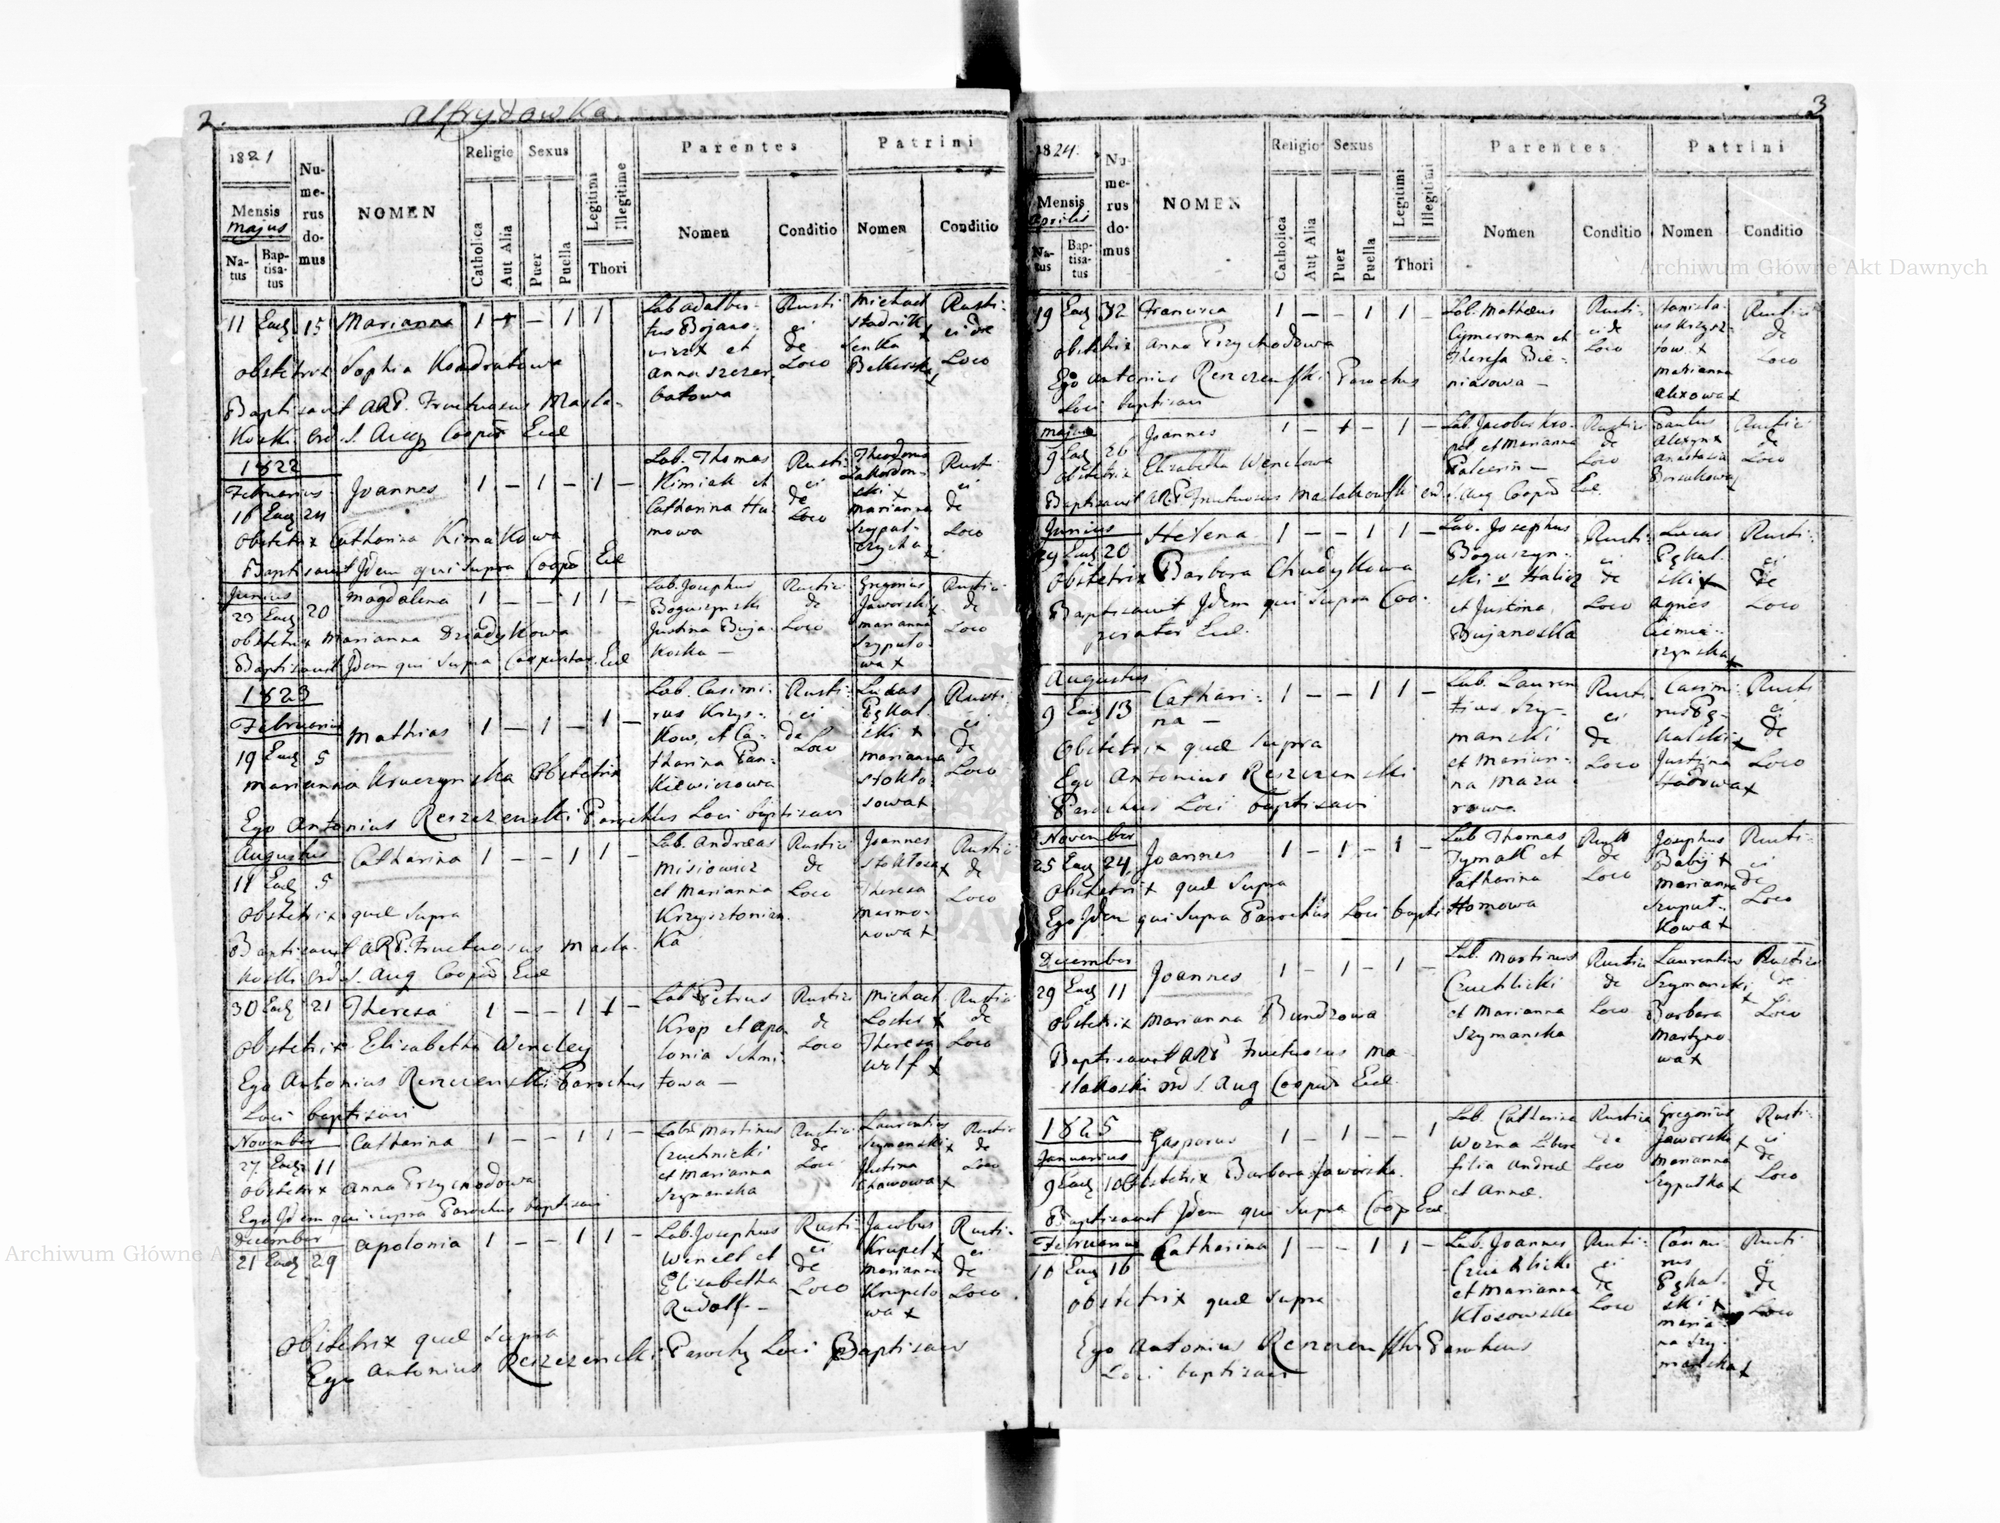 2.
Alfrydowka
1821
Mensis
Majus
Na-
tus
Bap-
tisa-
tus
Nu-
me-
rus
do-
mus
NOMEN
Religio
Catholica
Aut Alia
Sexus
Puer
Puella
Legitimi
Illegitime
Thori
Parentes
Nomen
Conditio
Patrini
Nomen
Conditio
11 Ead 15 Marianna 1 - - 1 1
Lab adalber-
tus Bojano-
wicz et
Anna Szczer
batowa
Rusti
ci
de
Loco
Michael
Stadnik
x
Rusti-
ci de
Loco
Obstetrix Sophia Kondratowa
Baptisavit ARP. Fructuosus Masla-
koski Ord. S. Aug Coopr Eccl
1822
Februarius
16 Ead 24 Joannes 1 - 1 - 1 -
Lab. Thomas
Kimiak et
Catharina Hu
mowa
Rusti
ci
de
Loco
Marianna
x
Rusti
ci
de
Loco
Obstetrix Catharina Kimakowa
Baptisavit Idem qui supra Coopr Eccl
Junius
23 Ead 20 Magdalena 1 - - 1 1 -
Lab. Josephus
Boguszynski
Justina Buja-
koska -
Rustici
de
Loco
Gregorius
Jaworski x
Marianna
Szyputo-
wa x
Rustici
de
Loco
Obstetrix Marianna Dziadykowa
Baptisavit Idem qui supra Cooperator Eccl
1823
Februarius
19 Ead 5 Mathias 1 - 1 - 1 -
Lab. Casimi-
rus Krzys-
kow, et Ca-
tharina Pan-
kiewiczowa
Rusti-
ci
de
Loco
Lucas
Pękal-
ski x
Marianna
Stokto-
sowa x
Rusti
ci
de
Loco
Marianna Kruczynska Obstetrix
Ego Antonius Reszczenski Parochus Loci baptisavi
Augustus
11 Ead 5 Catharina 1 - - 1 1 -
Lab. Andreas
Misiowicz
et Marianna
Krzysztonian-
ka
Rustici
de
Loco
Joannes
Stoktosa x
Theresa
Marmo-
nowa x
Rustici
de
Loco
Obstetrix quae supra
Baptisavit ARP. Fructuosus Masla-
koski Ord S. Aug Coopr Eccl
30 Ead 21 Theresa 1 - - 1 1 -
Lab. Petrus
Krop et Apo
lonia Schmi-
towa -
Rustici
de
Loco
Michael
x
Theresa
Wolf x
Rustici
de
Loco
Obstetrix Elisabetha Wencley
Ego Antonius Reszczenski Parochus
Loci baptisavi
November
27 Ead 11 Catharina 1 - - 1 1 -
Lab. Martinus
Czuchnicki
et Marianna
Szymanska
Rustici
de
Loco
Laurentius
Szymanski x
Justina
x
Rustici
de
Loco
Obstetrix Anna Przychodowa
Ego Idem qui supra Parochus baptisavi
December
21 Ead 29 Apolonia 1 - - 1 1 -
Lab. Josephus
Wencel et
Elisabetha
Rudolf -
Rusti-
ci
de
Loco
Jacobus
Krupel x
Marianna
Krupelo
wa x
Rusti-
ci
de
Loco
Obstetrix quae supra
Ego Antonius Reszczenski Parochus Loci Baptisavi
3
1824.
Mensis
Aprilis
Na-
tus
Bap-
tisa-
tus
Nu-
me-
rus
do-
mus
NOMEN
Religio
Catholica
Aut Alia
Sexus
Puer
Puella
Legitimi
Illegitimi
Thori
Parentes
Nomen
Conditio
Patrini
Nomen
Conditio
19 Ead 32 Francisca 1 - - 1 1 -
Lab. Matheus
Cymerman et
Theresa Bie-
niasowa -
Rusti-
ci de
Loco
Stanisla-
us Krzysz-
tow. x
Marianna
Alexowa x
Rustici
de
Loco
Obstetrix Anna Przychodowa
Ego Antonius Reszczenski Parochus
Loci baptisavi
Majus
9 Ead 26 Joannes 1 - 1 - 1 -
Lab. Jacobus Kro-
pel et Marianna
Rustici
de
Loco
x
Anastasia
x
Rustici
de
Loco
Obstetrix Elizabetha Wenclowa
Baptisavit ARP. Fructuosus Maslakowski Ord S. Aug Coopr Eccl.
Junius
29 Ead 20 Helena 1 - - 1 1 -
Lab. Josephus
Boguszyn-
ski v Halicz
et Justina
Bujanoska
Rusti-
ci
de
Loco
Lucas
Pękal-
ski x
Agnes
Ciemie-
rzynska x
Rusti-
ci
de
Loco
Obstetrix Barbara Chudykowa
Baptisavit Idem qui supra Coo-
perator Eccl.
Augustus
9 Ead 13 Cathari-
na -
1 - - 1 1 -
Lab. Lauren
tius Szy-
manski
et Marian-
na Mazu
rowa
Rusti
ci
de
Loco
Casimi-
rus Pę-
kalski x
Justina
x
Rusti
ci
de
Loco
Obstetrix quae supra
Ego Antonius Reszczenski
Parochus Loci baptisavi
November
25 Ead 24 Joannes 1 - 1 - 1 -
Lab Thomas
Tymak et
Catharina
Homowa
Rusti
de
Loco
Josephus
Babij x
Marianna
Szuput-
kowa x
Rusti-
ci
de
Loco
Obstetrix quae supra
Ego Idem qui supra Parochus Loci bapti
December
29 Ead 11 Joannes 1 - 1 - 1 -
Lab. Martinus
Czuchlicki
et Marianna
Szymanska
Rustici
de
Loco
Laurentius
Szymanski
x
Barbara
Martyno
wa x
Rustici
de
Loco
Obstetrix Marianna Bundzowa
Baptisavit ARP Fructuosus Ma-
slakoski Ord S. Aug Coopr Eccl.
1825
Januarius
9 Ead 10 Gasparus 1 - 1 - - 1
Lab. Catharina
Wozna Libera
filia Andreae
et Annae.
Rustica
de
Loco
Gregorius
Jaworski x
Marianna
Szyputka x
Rusti-
ci
de
Loco
Obstetrix Barbara Jaworska
Baptisavit Idem qui supra Coop Eccl.
Februarius
10 Ead 16 Catharina 1 - - 1 1 -
Lab. Joannes
Czuchlicki
et Marianna
Kłosowska
Rusti-
ci
de
Loco
Casimi
rus
Pękal-
ski x
Maria-
na Szy-
manska x
Rusti
ci
de
Loco
Obstetrix quae supra
Ego Antonius Reszczenski Parochus
Loci baptisavi
Archiwum Główne Akt Dawnych
Archiwum Główne Akt Dawnych